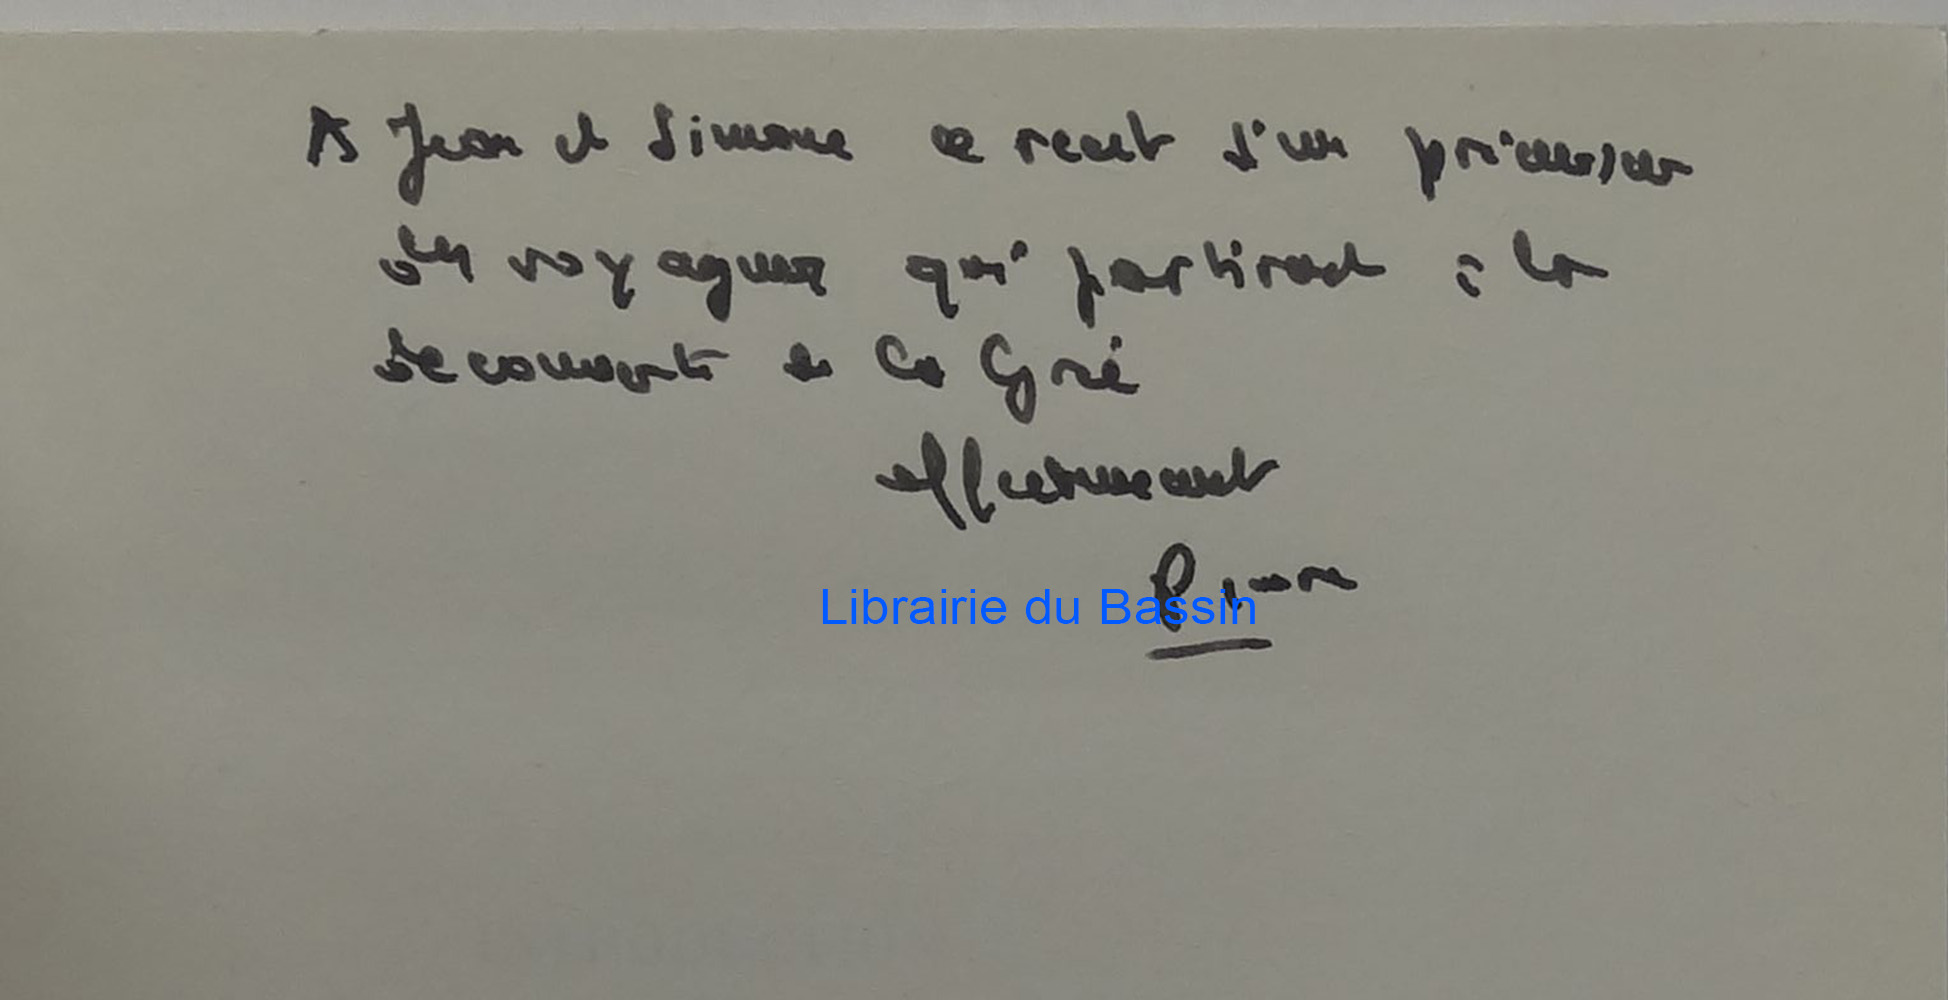 A Jean et Simone ce recit d'un précurseur
des voyageurs qui partirent à la
decouverte de la Grèce
affectueusement
Pierre
Librairie du Bassin